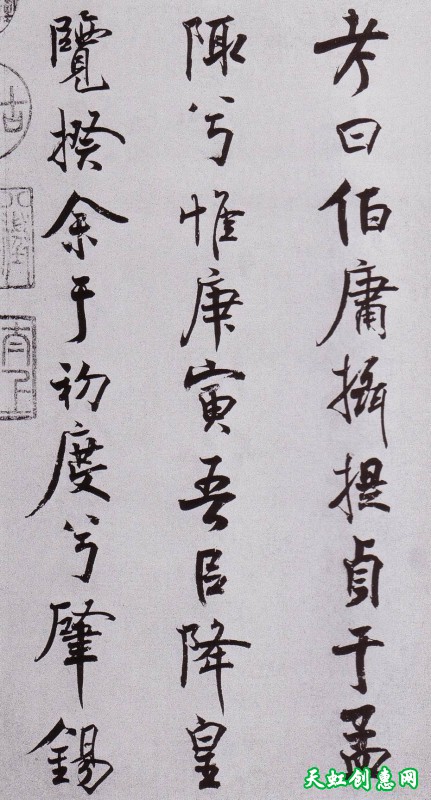 考曰伯庸攝提貞于孟
陬兮惟庚寅吾㠯降皇
覽揆余于初度兮肇錫
古
天虹创惠网